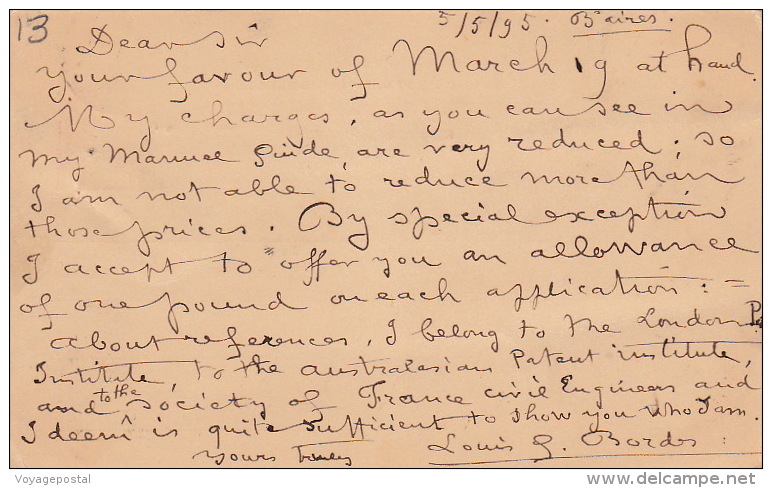 13
5/5/95. Bs aires.
Dear sir
your favour of March 19 at hand.
My charges, as you can see in
my Manuel Guide, are very reduced. so
I am not able to reduce more than
those prices. By special exception
I accept to offer you an allowance
of one pound on each application : =
about references, I belong to the London
Institute, to the australasian Patent institute,
and to the society of France civil Engineers and
I deem it is quite sufficient to show you who I am.
yours truly Louis G. Bordes
Voyagepostal
delcampe.net